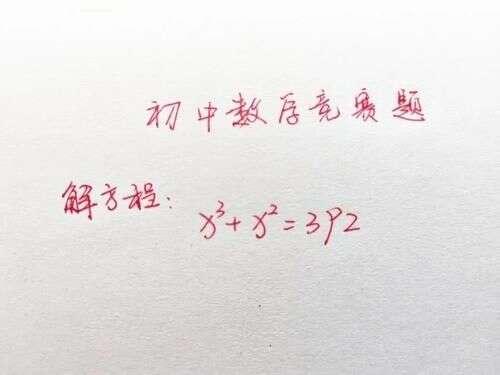 初中数学竞赛题
解方程:
x³+x²=392